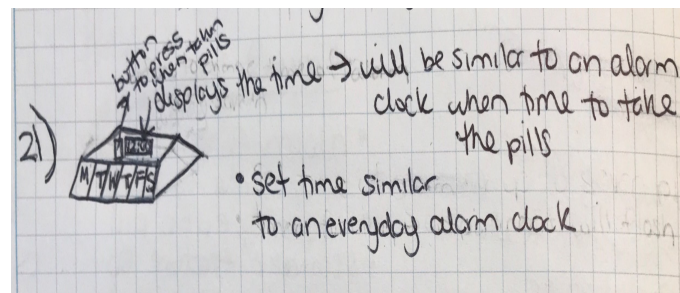 button
to press
when taken
pills
displays the time → will be similar to an alarm
clock when time to take
the pills
21)
M T W T F S
• set time similar
to an everyday alarm clock